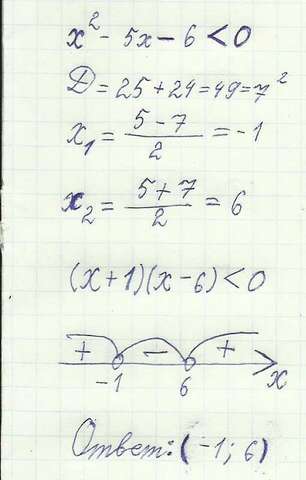 x² - 5x - 6 < 0
D = 25 + 24 = 49 = 7²
x₁ = (5 - 7)/2 = -1
x₂ = (5 + 7)/2 = 6
(x+1)(x-6) < 0
+ - +
-1 6 x
Ответ: (-1; 6)